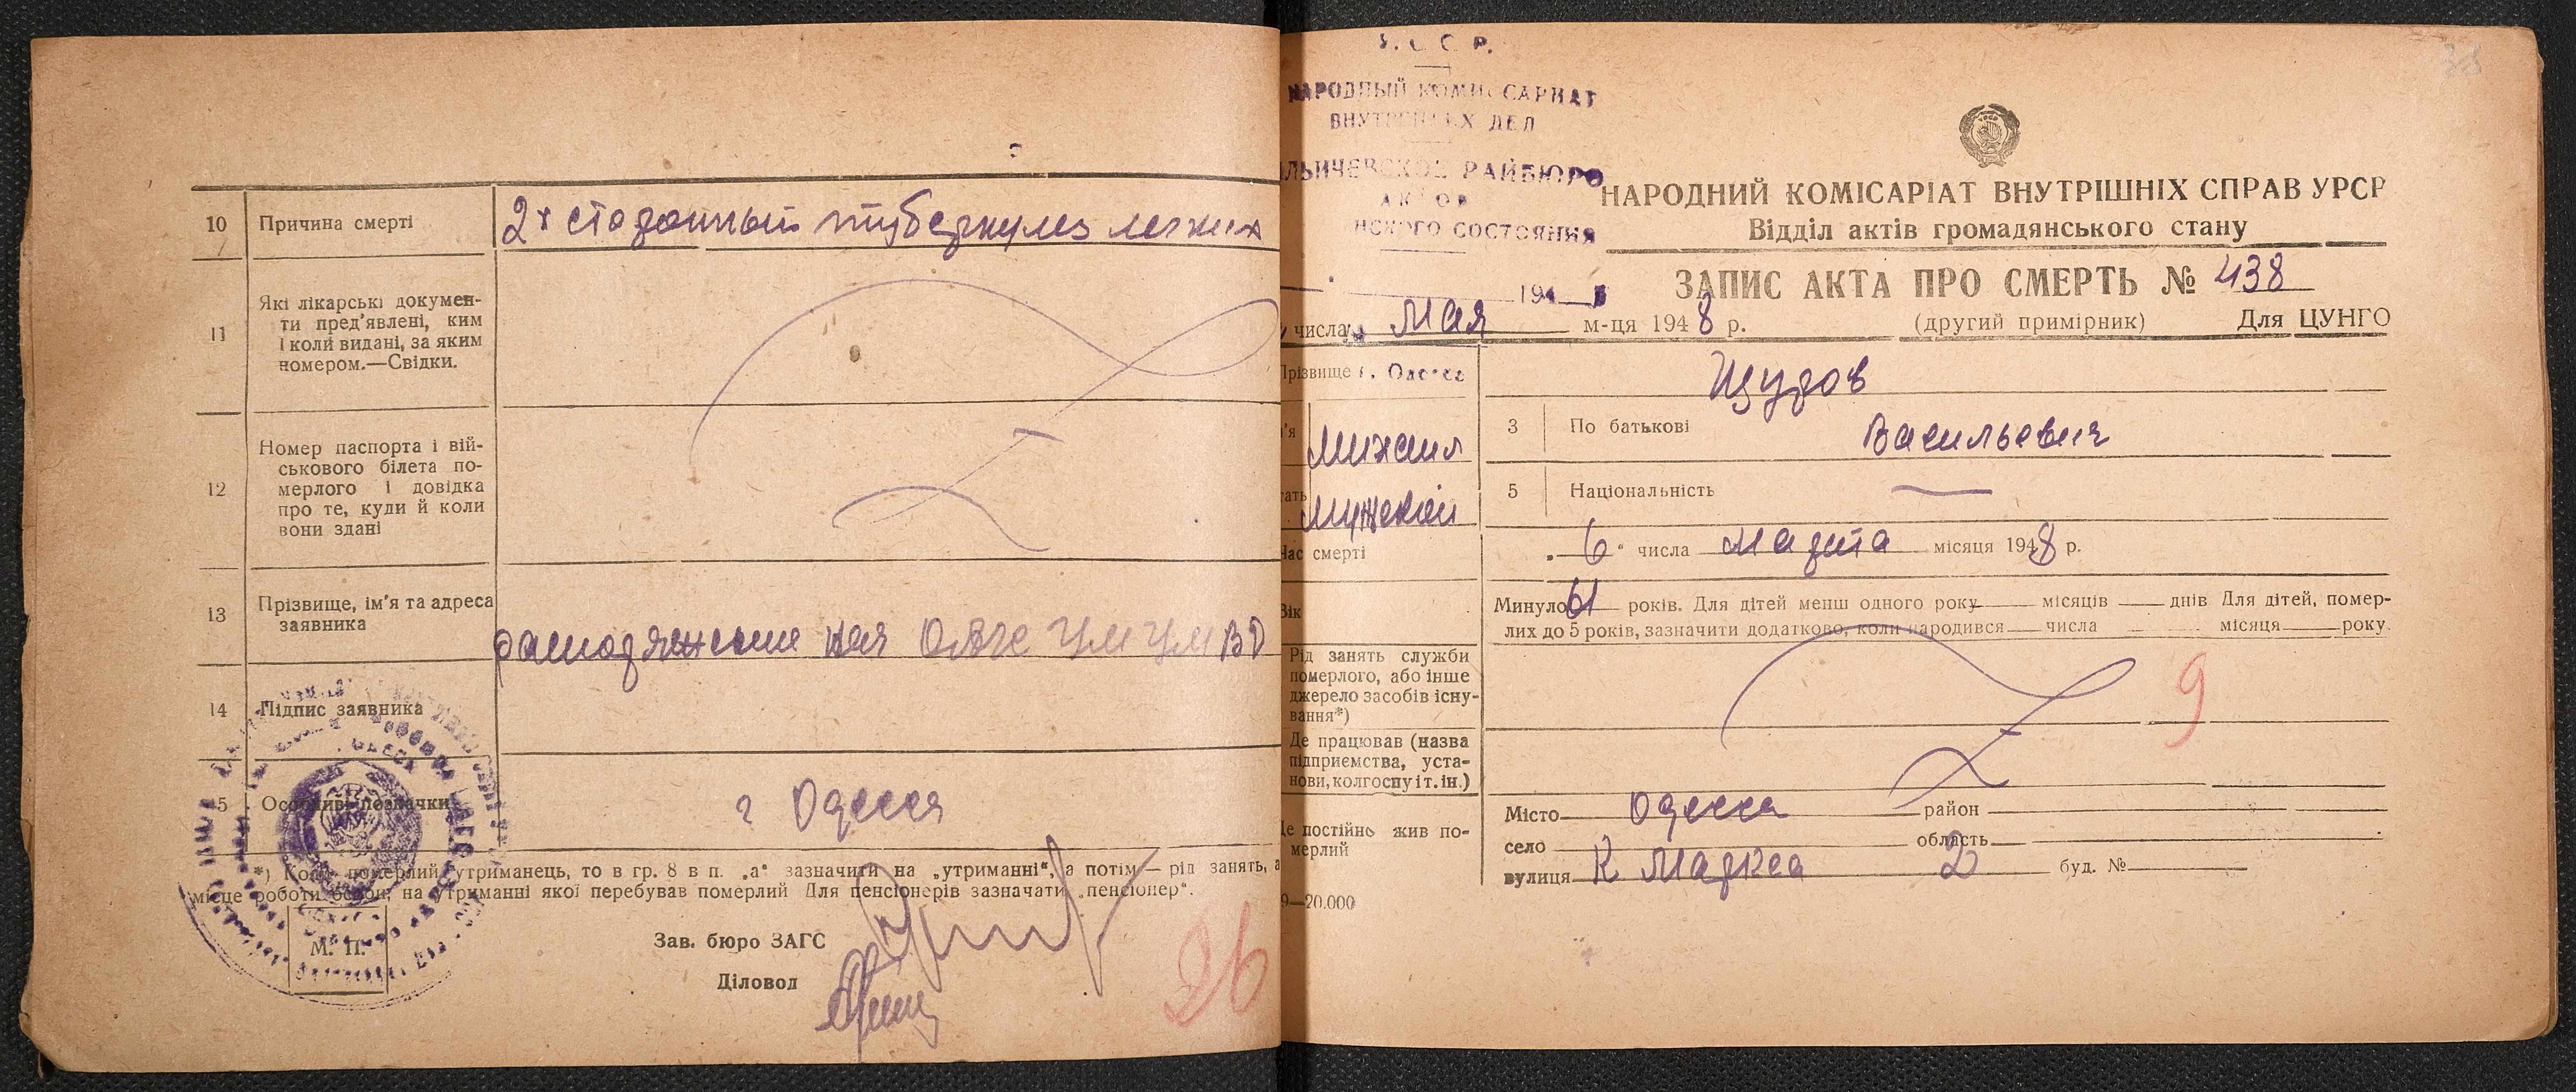 10 Причина смерти 2х стороний туберкулез легких
11 Які лікарські докумен-
ти пред'явлені, ким
і коли видані, за яким
номером.—Свідки.
12 Номер паспорта і вій-
ськового білета по-
мерлого і довідка
про те, куди й коли
вони здані
13 Прізвище, ім'я та адреса
заявника
14 Підпис заявника
15 Особливі позначки г Одесса
*) Коли померлий утриманець, то в гр. 8 в п. „а" зазначити на „утриманні", а потім — рід занять, а
місце роботи особи, на утриманні якої перебував померлий Для пенсіонерів зазначати „пенсіонер".
М. П.
Зав. бюро ЗАГС
Діловод
26
У. С. С. Р.
НАРОДНЫЙ КОМИССАРИАТ
ВНУТРЕННИХ ДЕЛ
ЛЬИЧЕВСКОЕ РАЙБЮРО
АКТОВ
НСКОГО СОСТОЯНИЯ
38
НАРОДНИЙ КОМІСАРІАТ ВНУТРІШНІХ СПРАВ УРСР
Відділ актів громадянського стану
ЗАПИС АКТА ПРО СМЕРТЬ № 438
194
числа Мая м-ця 1948 р. (другий примірник) Для ЦУНГО
Прізвище г. Одесса Щуров
Михаил 3 По батькові Васильевич
Мужской 5 Національність —
Час смерті „6" числа Марта місяця 1948 р.
Вік Минуло 61 років. Для дітей менш одного року місяців днів Для дітей, помер-
лих до 5 років, зазначити додатково, коли народився числа місяця року
Рід занять служби
померлого, або інше
джерело засобів існу-
вання*)
9
Де працював (назва
підприємства, уста-
нови, колгоспу і т. ін.)
Де постійно жив по-
мерлий
Місто Одесса район
село область
вулиця К Маркса 2 буд. №
9—20.000